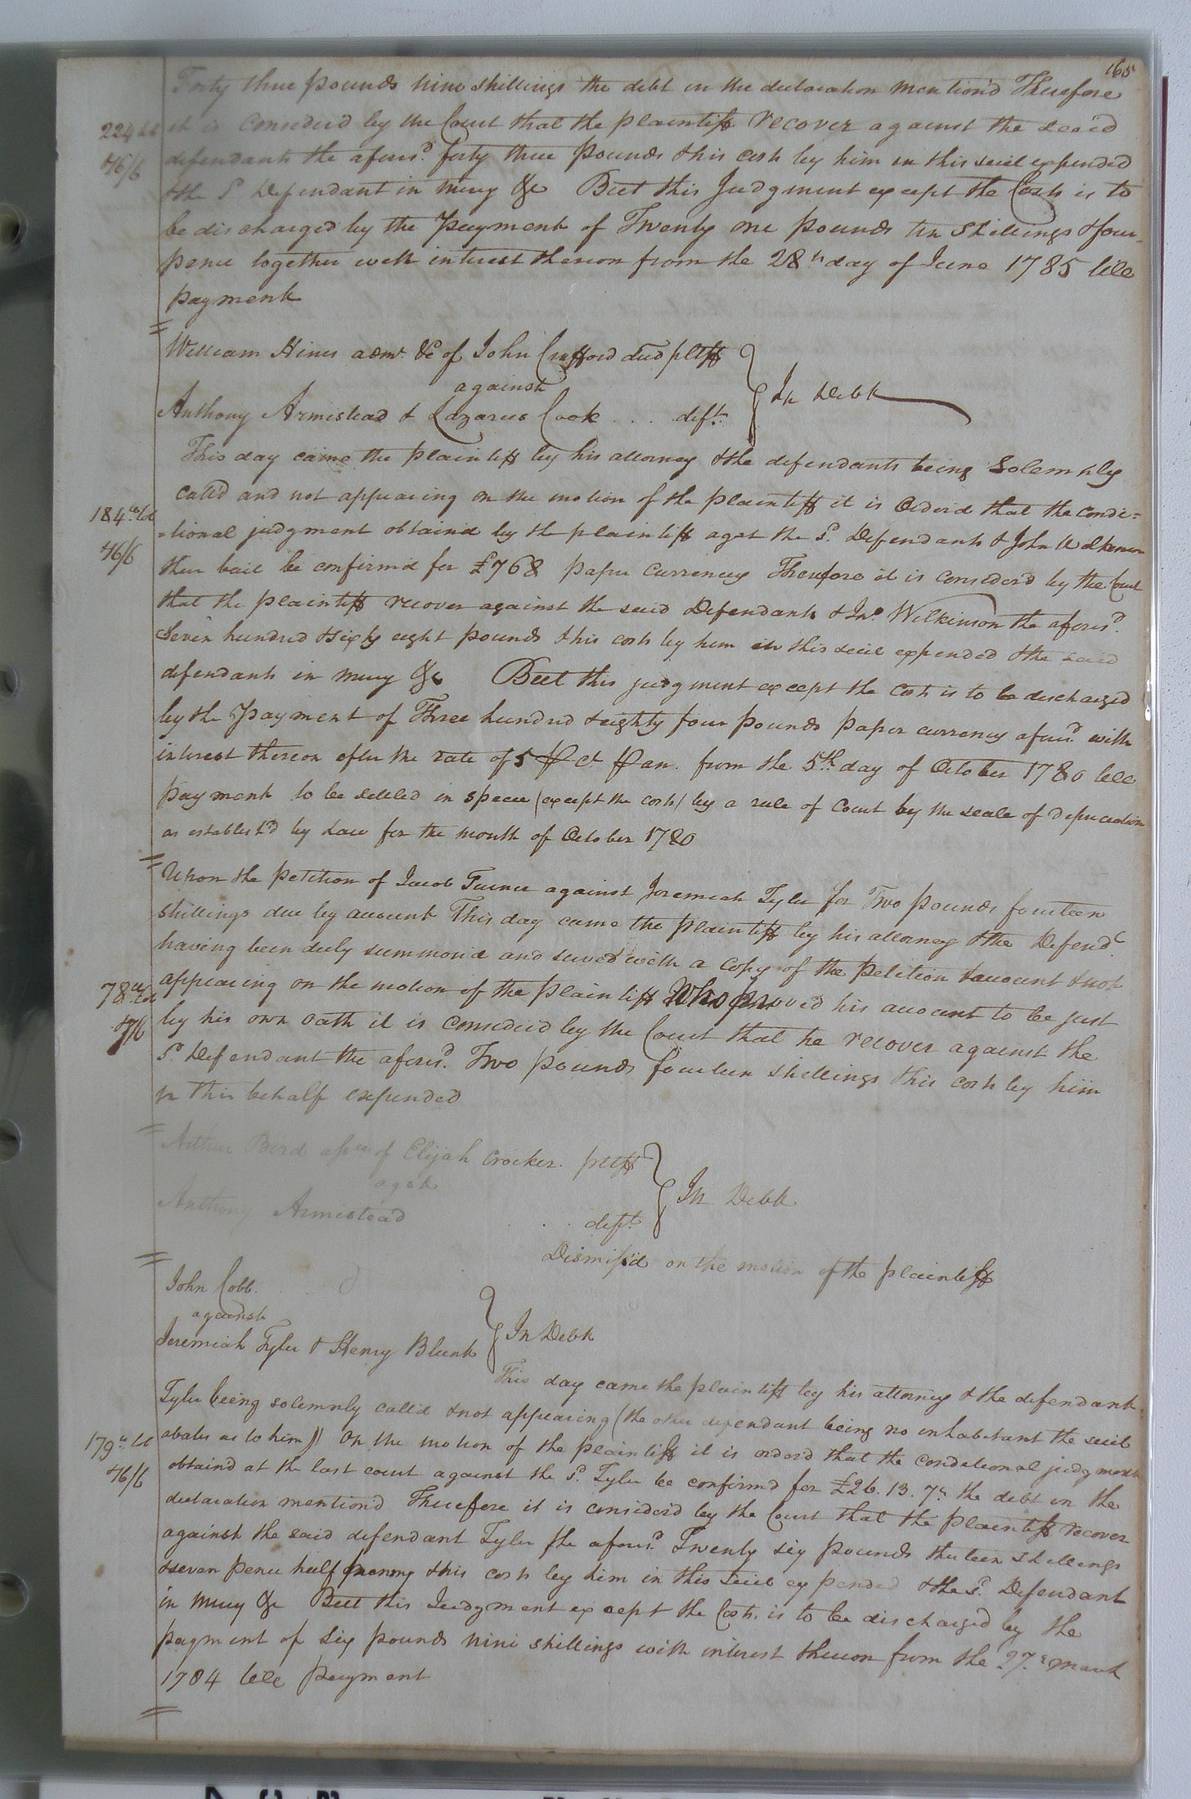 165
Forty three pounds nine shillings the debt in the declaration mention'd Therefore
it is consider'd by the Court that the plaintiff recover against the said
defendants the afores.d forty three pounds & his costs by him in this suit expended
& the s.d Defendant in mercy &c But this Judgment except the Costs is to
be discharged by the Payment of Twenty one pounds ten Shillings & four
pence together with interest thereon from the 28th day of June 1785 till
payment
William Hines adm.r &c of John Crafford dec'd pltff
against
In Debt
Anthony Armistead & Lazarus Cook ... deft.
This day came the plaintiff by his attorney & the defendants being Solemnly
call'd and not appearing on the motion of the plaintiff it is Order'd that the Condi=
=tional judgment obtain'd by the plaintiff agst the s.d Defendants & John Wilkinson
their bail be confirm'd for £768 paper currency Therefore it is consider'd by the Court
that the plaintiff recover against the said Defendants & Jno. Wilkinson the afores.d
Seven hundred & sixty eight pounds & his costs by him in this suit expended & the said
defendants in mercy &c But this judgment except the Costs is to be discharged
by the Payment of Three hundred & eighty four pounds paper currency afores.d with
interest thereon after the rate of 5 P Ct. P an. from the 5th day of October 1780 till
payment to be settled in specie (except the costs) by a rule of Court by the scale of depreciation
as establish'd by Law for the month of October 1780
Upon the Petition of Jacob Turner against Jeremiah Tyler for Two pounds fourteen
Shillings due by account This day came the plaintiff by his attorney & the Defend.t
having been duly summon'd and served with a copy of the petition & account & not
appearing on the motion of the plaintiff Who proved his account to be just
by his own oath it is consider'd by the Court that he recover against the
s.d Defendant the afores.d Two pounds fourteen shillings & his costs by him
in this behalf expended
Arthur Bird assnee of Elijah Crocker. pltff
agst
In Debt
Anthony Armistead ... deft.
Dismiss'd on the motion of the plaintiff
John Cobb.
against
In Debt
Jeremiah Tyler & Henry Blunt
This day came the plaintiff by his attorney & the defendant
Tyler being solemnly call'd & not appearing (the other defendant being no inhabitant the suit
abates as to him)) On the motion of the plaintiff it is order'd that the conditional judgment
obtain'd at the last court against the s.d Tyler be confirm'd for £26. 13. 7½ the debt in the
declaration mention'd Therefore it is consider'd by the Court that the plaintiff recover
against the said defendant Tyler the afores.d Twenty six pounds thirteen Shillings
& seven pence half penny & his costs by him in this suit expended & the s.d Defendant
in mercy &c But this Judgment except the Costs. is to be discharged by the
payment of Six pounds nine shillings with interest thereon from the 27. March
1784 till payment
46/6
46/6
46/6